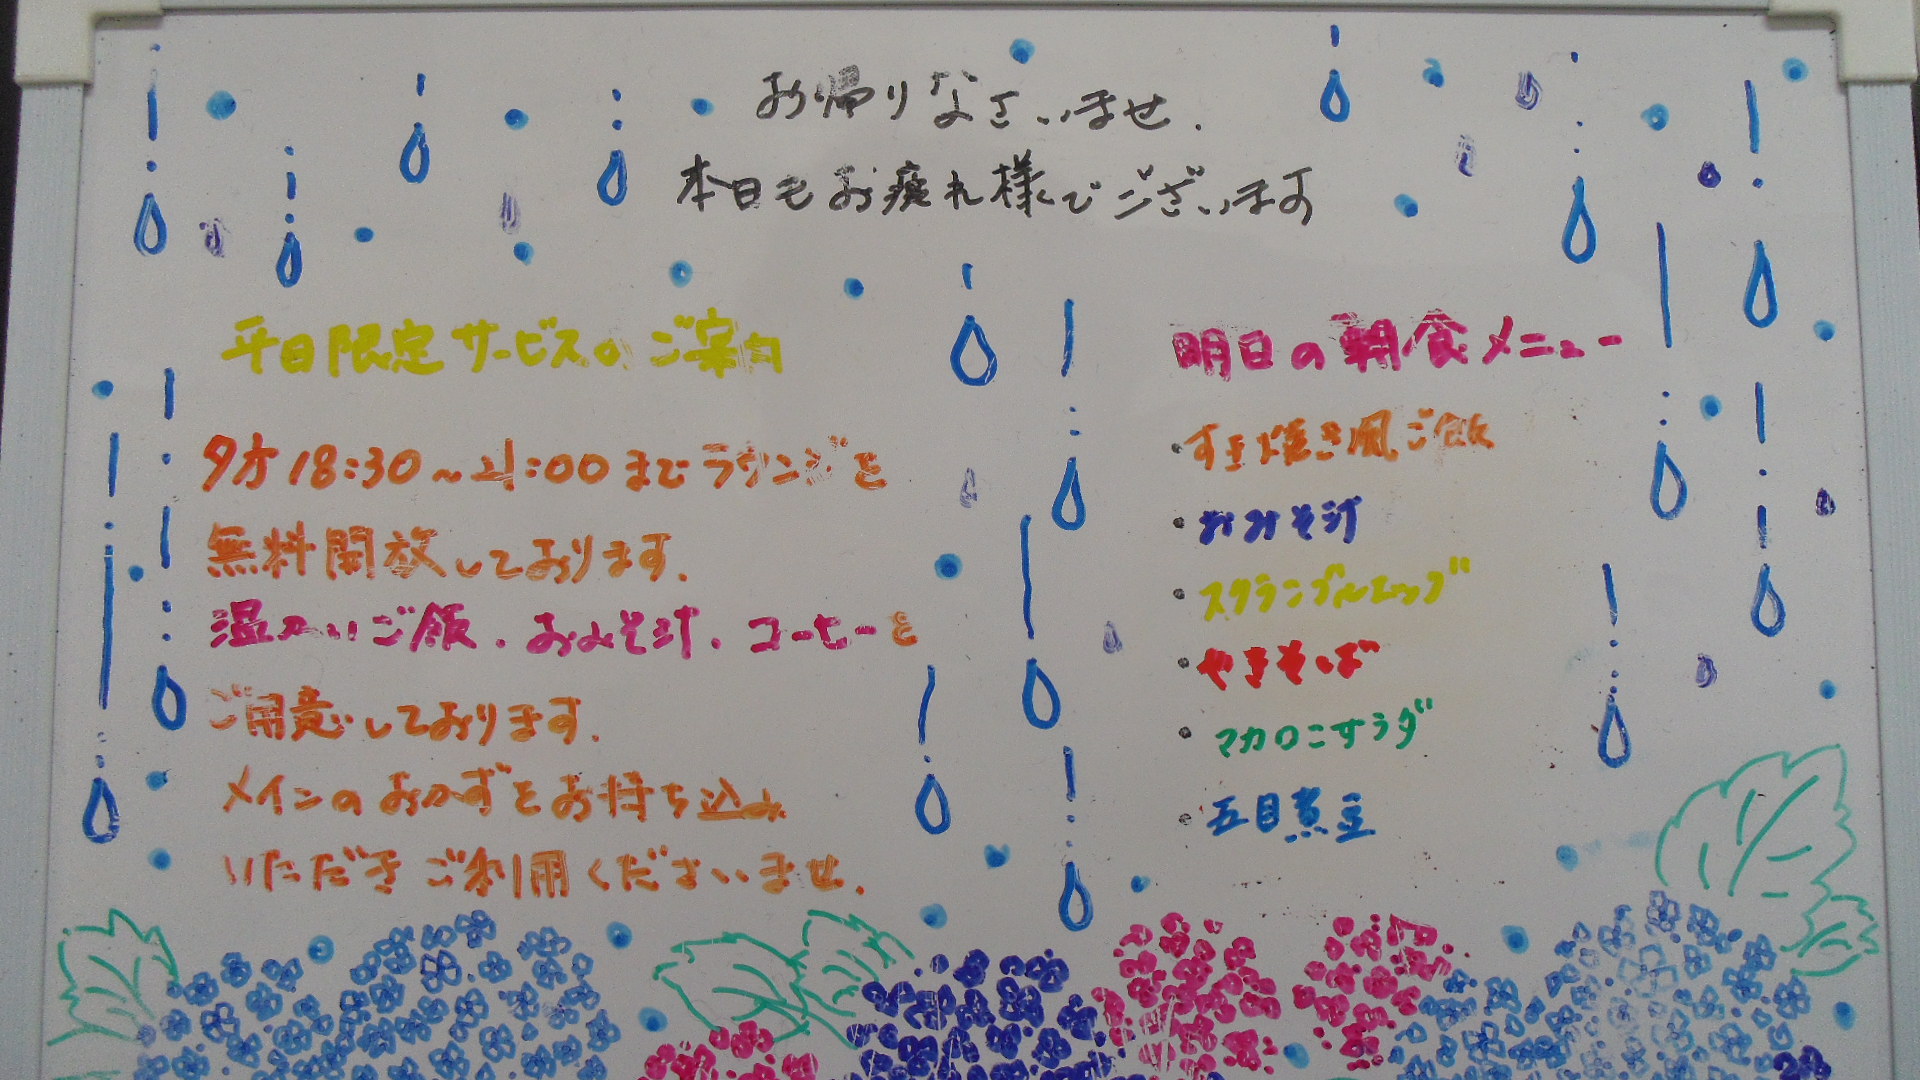 お帰りなさいませ.
本日もお疲れ様でございます
平日限定サービスのご案内
夕方18:30～21:00までラウンジを
無料開放しております.
温かいご飯.おみそ汁.コーヒーを
ご用意しております.
メインのおかずをお持ち込み
いただきご利用くださいませ.
明日の朝食メニュー
・すき焼き風ご飯
・おみそ汁
・スクランブルエッグ
・やきそば
・マカロニサラダ
・五目煮豆